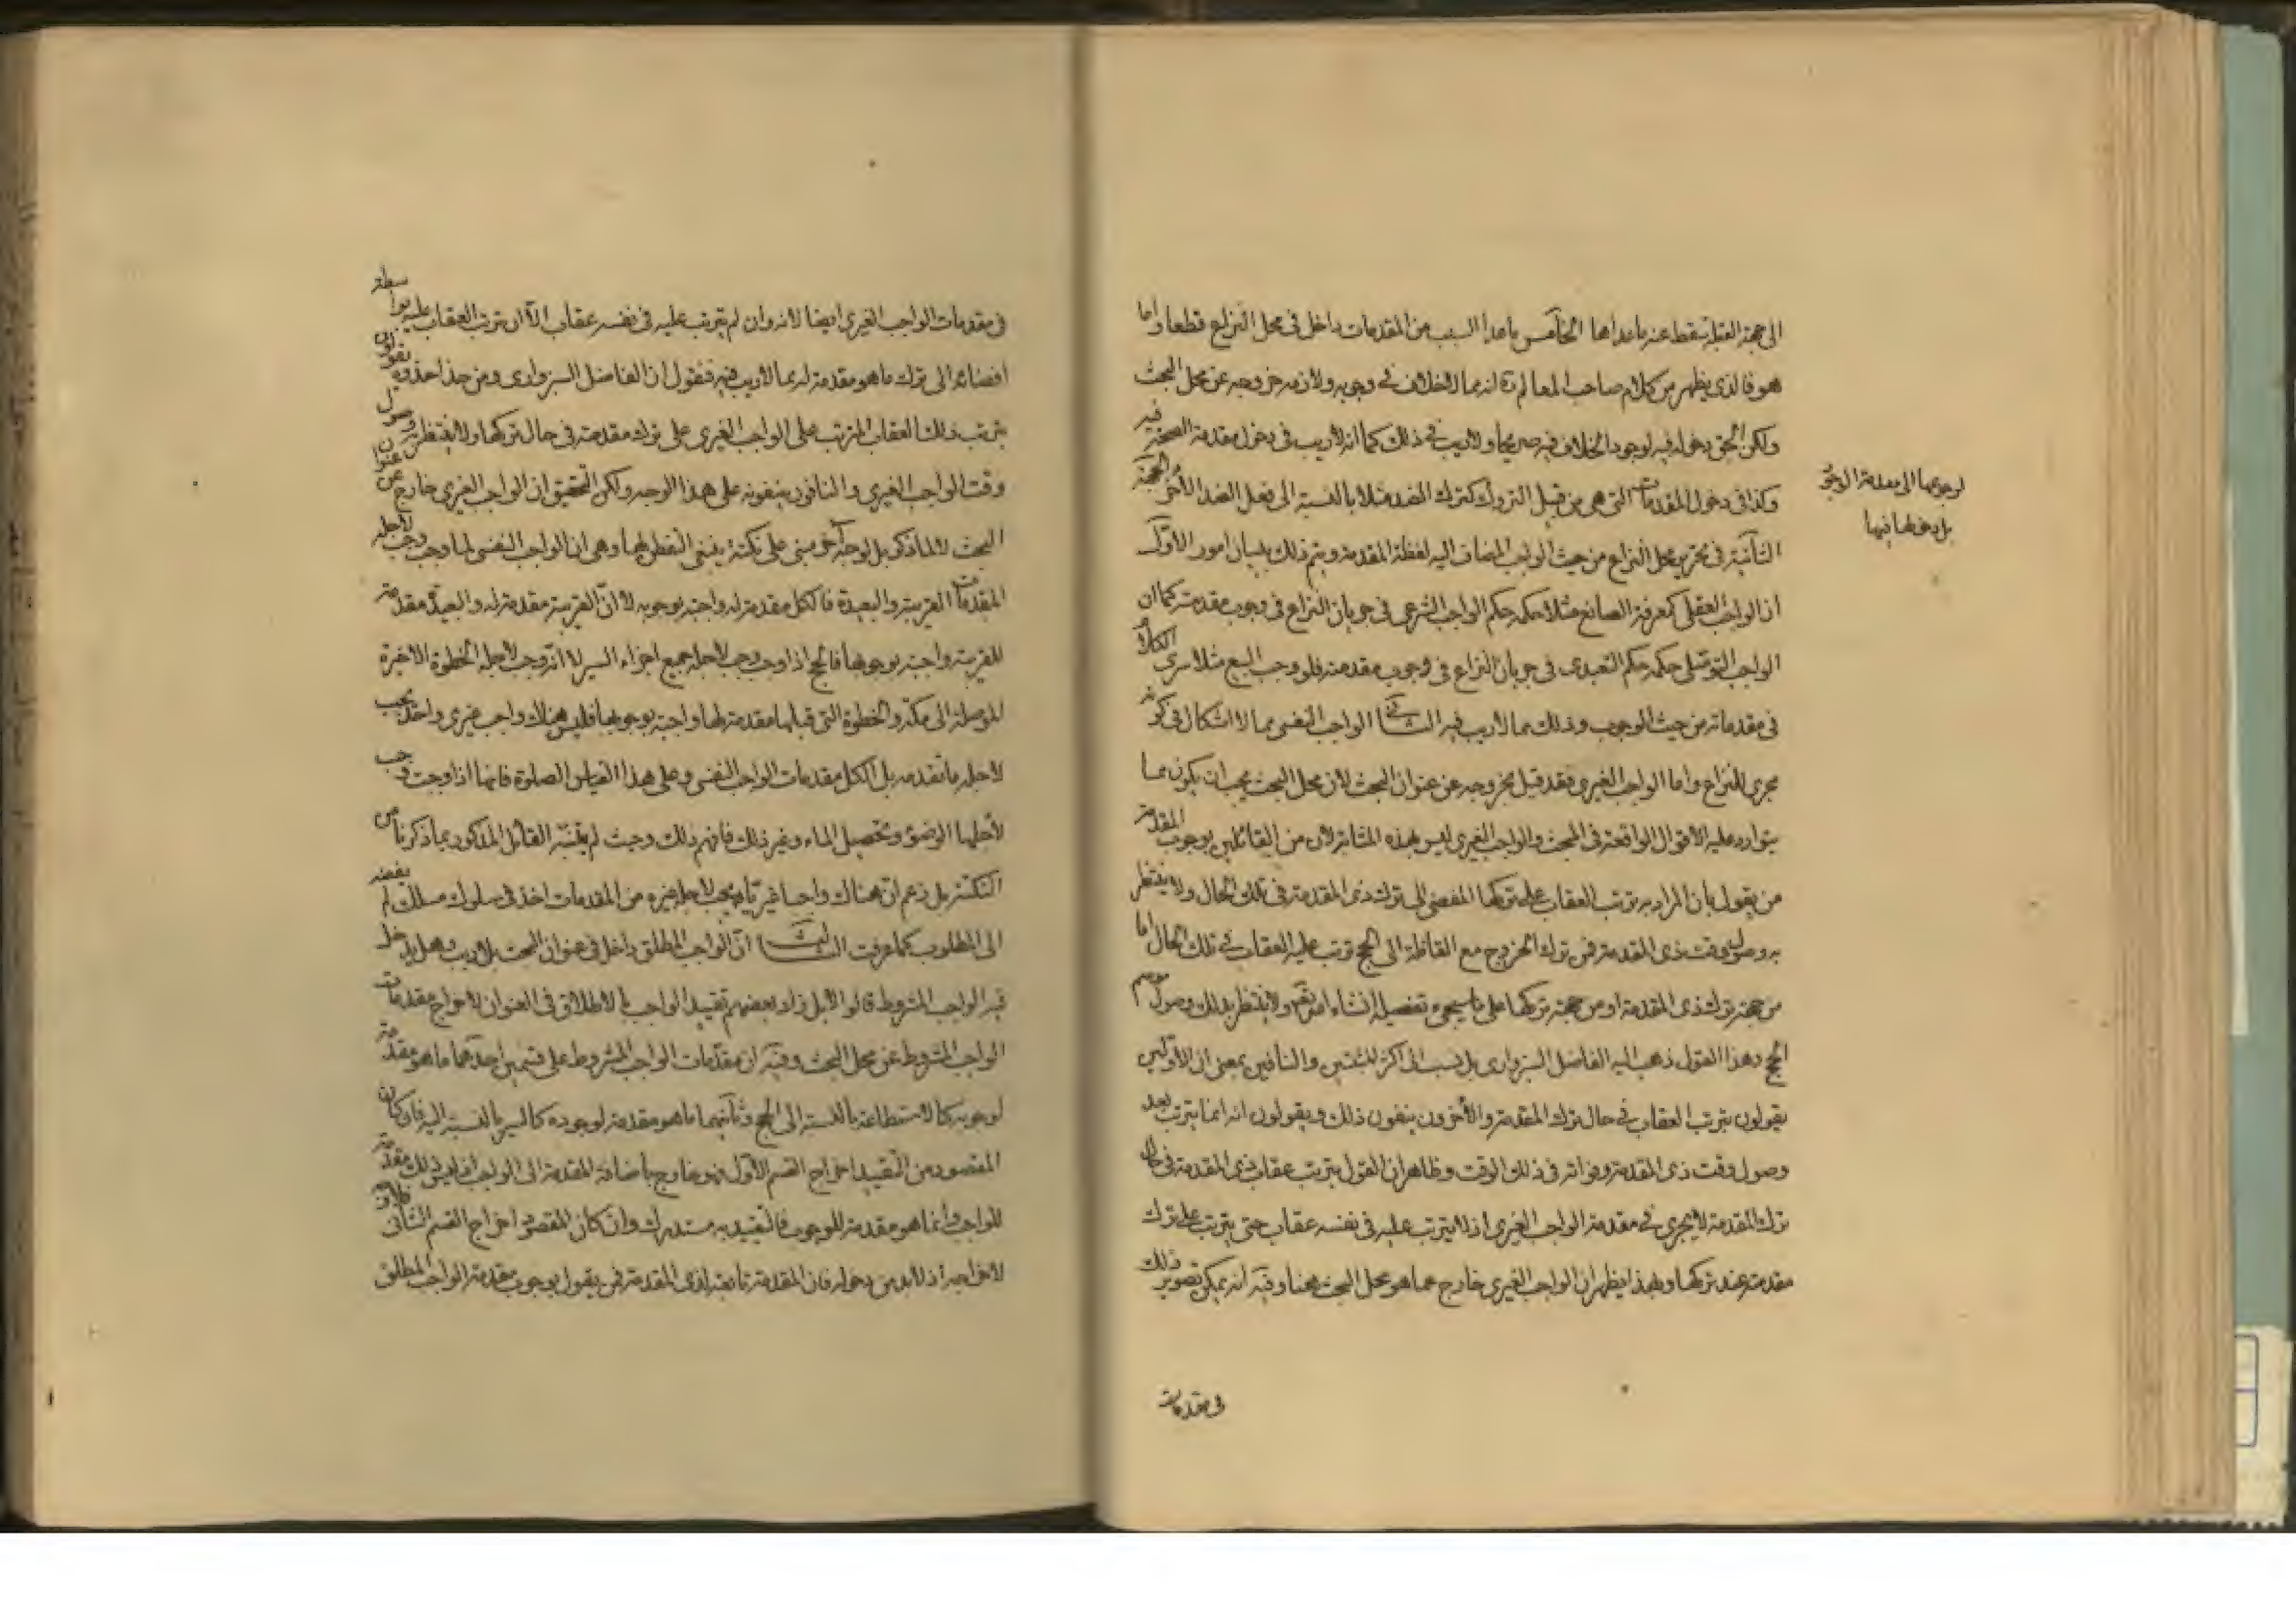 الى جهة القبلة يسقط عنه ماعداها الخامس ماعدا السبب من المقدمات داخل فى محل النزاع قطعا واما
هو فالذى يظهر من كلام صاحب المعالم ره انه مما لا خلاف فى وجوبه ولازمه خروجه عن محل البحث
ولكن الحق دخوله فيه لوجود الخلاف فيه صريحا ولا ريب فى ذلك كما انه لا ريب فى دخول مقدمة الصحة فيه
لرجوعها الى مقدمة الوجود
بل دخولها فيها
وكذا فى دخول المقدمات التى هى من قبيل التروك كترك الضد مثلا بالنسبة الى فعل الضد الآخر الجهة
الثانية فى تحرير محل النزاع من حيث الواجب المضاف اليه لفظة المقدمة ويتم ذلك ببيان امور الاول
ان الواجب العقلى كمعرفة الصانع مثلا حكمه حكم الواجب الشرعى فى جريان النزاع فى وجوب مقدمته كما ان
الواجب التوصلى حكمه حكم التعبدى فى جريان النزاع فى وجوب مقدمته فلو وجب البيع مثلا سرى الكلام
فى مقدماته من حيث الوجوب وذلك مما لا ريب فيه الثانى الواجب النفسى مما لا اشكال فى كونه
مجرى للنزاع واما الواجب الغيرى فقد قيل بخروجه عن عنوان البحث لان محل البحث يجب ان يكون مما
يتوارد عليه الاقوال الواقعة فى المبحث والواجب الغيرى ليس بهذه المثابة لان من القائلين بوجوب المقدمة
من يقول بان المراد به ترتب العقاب على تركها المفضى الى ترك ذى المقدمة فى تلك الحال ولا ينتظر
به وصول وقت ذى المقدمة فمن ترك الخروج مع القافلة الى الحج ترتب عليه العقاب فى تلك الحال اما
من جهة ترك ذى المقدمة او من جهة تركها على ما سيجىء تفصيله انشاء الله تعالى ولا ينتظر بذلك وصول موسم
الحج وهذا القول ذهب اليه الفاضل السبزوارى بل نسب الى اكثر المثبتين والنافين بمعنى ان الاولين
يقولون بترتب العقاب فى حال ترك المقدمة والآخرون ينفون ذلك ويقولون انه انما يترتب بعد
وصول وقت ذى المقدمة وفواته فى ذلك الوقت وظاهر ان القول بترتب عقاب ذى المقدمة فى حال
ترك المقدمة لا يجرى فى مقدمة الواجب الغيرى اذ لا يترتب عليه فى نفسه عقاب حتى يترتب على ترك
مقدمته عند تركها وبهذا يظهر ان الواجب الغيرى خارج عما هو محل البحث هنا وفيه انه يمكن تصوير ذلك
فى مقدمات
فى مقدمات الواجب الغيرى ايضا لانه وان لم يترتب عليه فى نفسه عقاب الا ان ترتب العقاب عليه بواسطة
افضائه الى ترك ما هو مقدمة له مما لا ريب فيه فنقول ان الفاضل السبزوارى ومن حذا حذوه يقولون
بترتب ذلك العقاب المترتب على الواجب الغيرى على ترك مقدمته فى حال تركها ولا ينتظرون وصول
وقت الواجب الغيرى والنافون ينفونه على هذا الوجه ولكن التحقيق ان الواجب الغيرى خارج عن عنوان
البحث لا لما ذكر بل لوجه آخر مبنى على نكتة ينبغى التفطن لها وهى ان الواجب النفسى لما وجب وجب لاجله
المقدمات القريبة والبعيدة فالكل مقدمة له واجبة بوجوبه لا ان القريبة مقدمة له والبعيدة مقدمة
للقريبة واجبة بوجوبها فالحج اذا وجب وجب لاجله جميع اجزاء السير لا انه وجب لاجله الخطوة الاخيرة
الموصلة الى مكة والخطوة التى قبلها مقدمة لها واجبة بوجوبها فليس هناك واجب غيرى واحد يجب
لاجله ما تقدمه بل الكل مقدمات الواجب النفسى وعلى هذا القياس الصلوة فانها اذا وجبت وجب
لاجلها الوضوء وتحصيل الماء وغير ذلك فافهم ذلك وحيث لم يتنبه القائل المذكور بما ذكرنا من
النكتة بل زعم ان هناك واجبا غيريا يجب لاجله غيره من المقدمات اخذ فى سلوك مسلك لم يفضه
الى المطلوب كما عرفت الثالث ان الواجب المطلق داخل فى عنوان البحث بلا ريب وهل يدخل
فيه الواجب المشروط قالوا لا بل زاد بعضهم تقييد الواجب بالاطلاق فى العنوان لاخراج مقدمات
الواجب المشروط عن محل البحث وفيه ان مقدمات الواجب المشروط على قسمين احدهما ما هو مقدمة
لوجوبه كالاستطاعة بالنسبة الى الحج وثانيهما ما هو مقدمة لوجوده كالسير بالنسبة اليه فان كان
المقصود من التقييد اخراج القسم الاول فهو خارج باضافة المقدمة الى الواجب اذ ليس ذلك مقدمة
للواجب وانما هو مقدمة للوجوب فالتقييد به مستدرك وان كان المقصود اخراج القسم الثانى فلا وجه
لاخراجه اذ لا بد من دخوله فان المقدمة تابعة لذى المقدمة فمن يقول بوجوب مقدمة الواجب المطلق